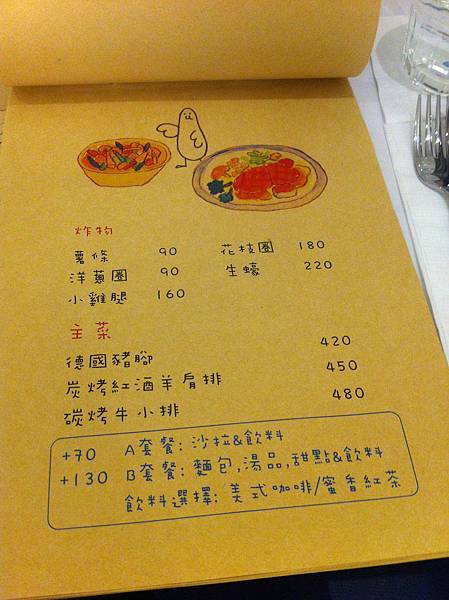 炸物
薯條 90 花枝圈 180
洋蔥圈 90 生蠔 220
小雞腿 160
主菜
德國豬腳 420
炭烤紅酒羊肩排 450
碳烤牛小排 480
+70 A套餐: 沙拉&飲料
+130 B套餐: 麵包,湯品,甜點&飲料
飲料選擇: 美式咖啡/蜜香紅茶